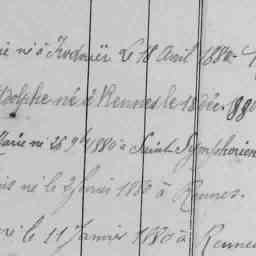 né à Rodouër le 18 Avril 1880
Adolphe né à Rennes le 16 Déc. 1880
Marie né 26 9bre 1880 à Saint Symphorien
né le 2 1880 à Rennes.
né le 11 Janvier 1880 à Rennes